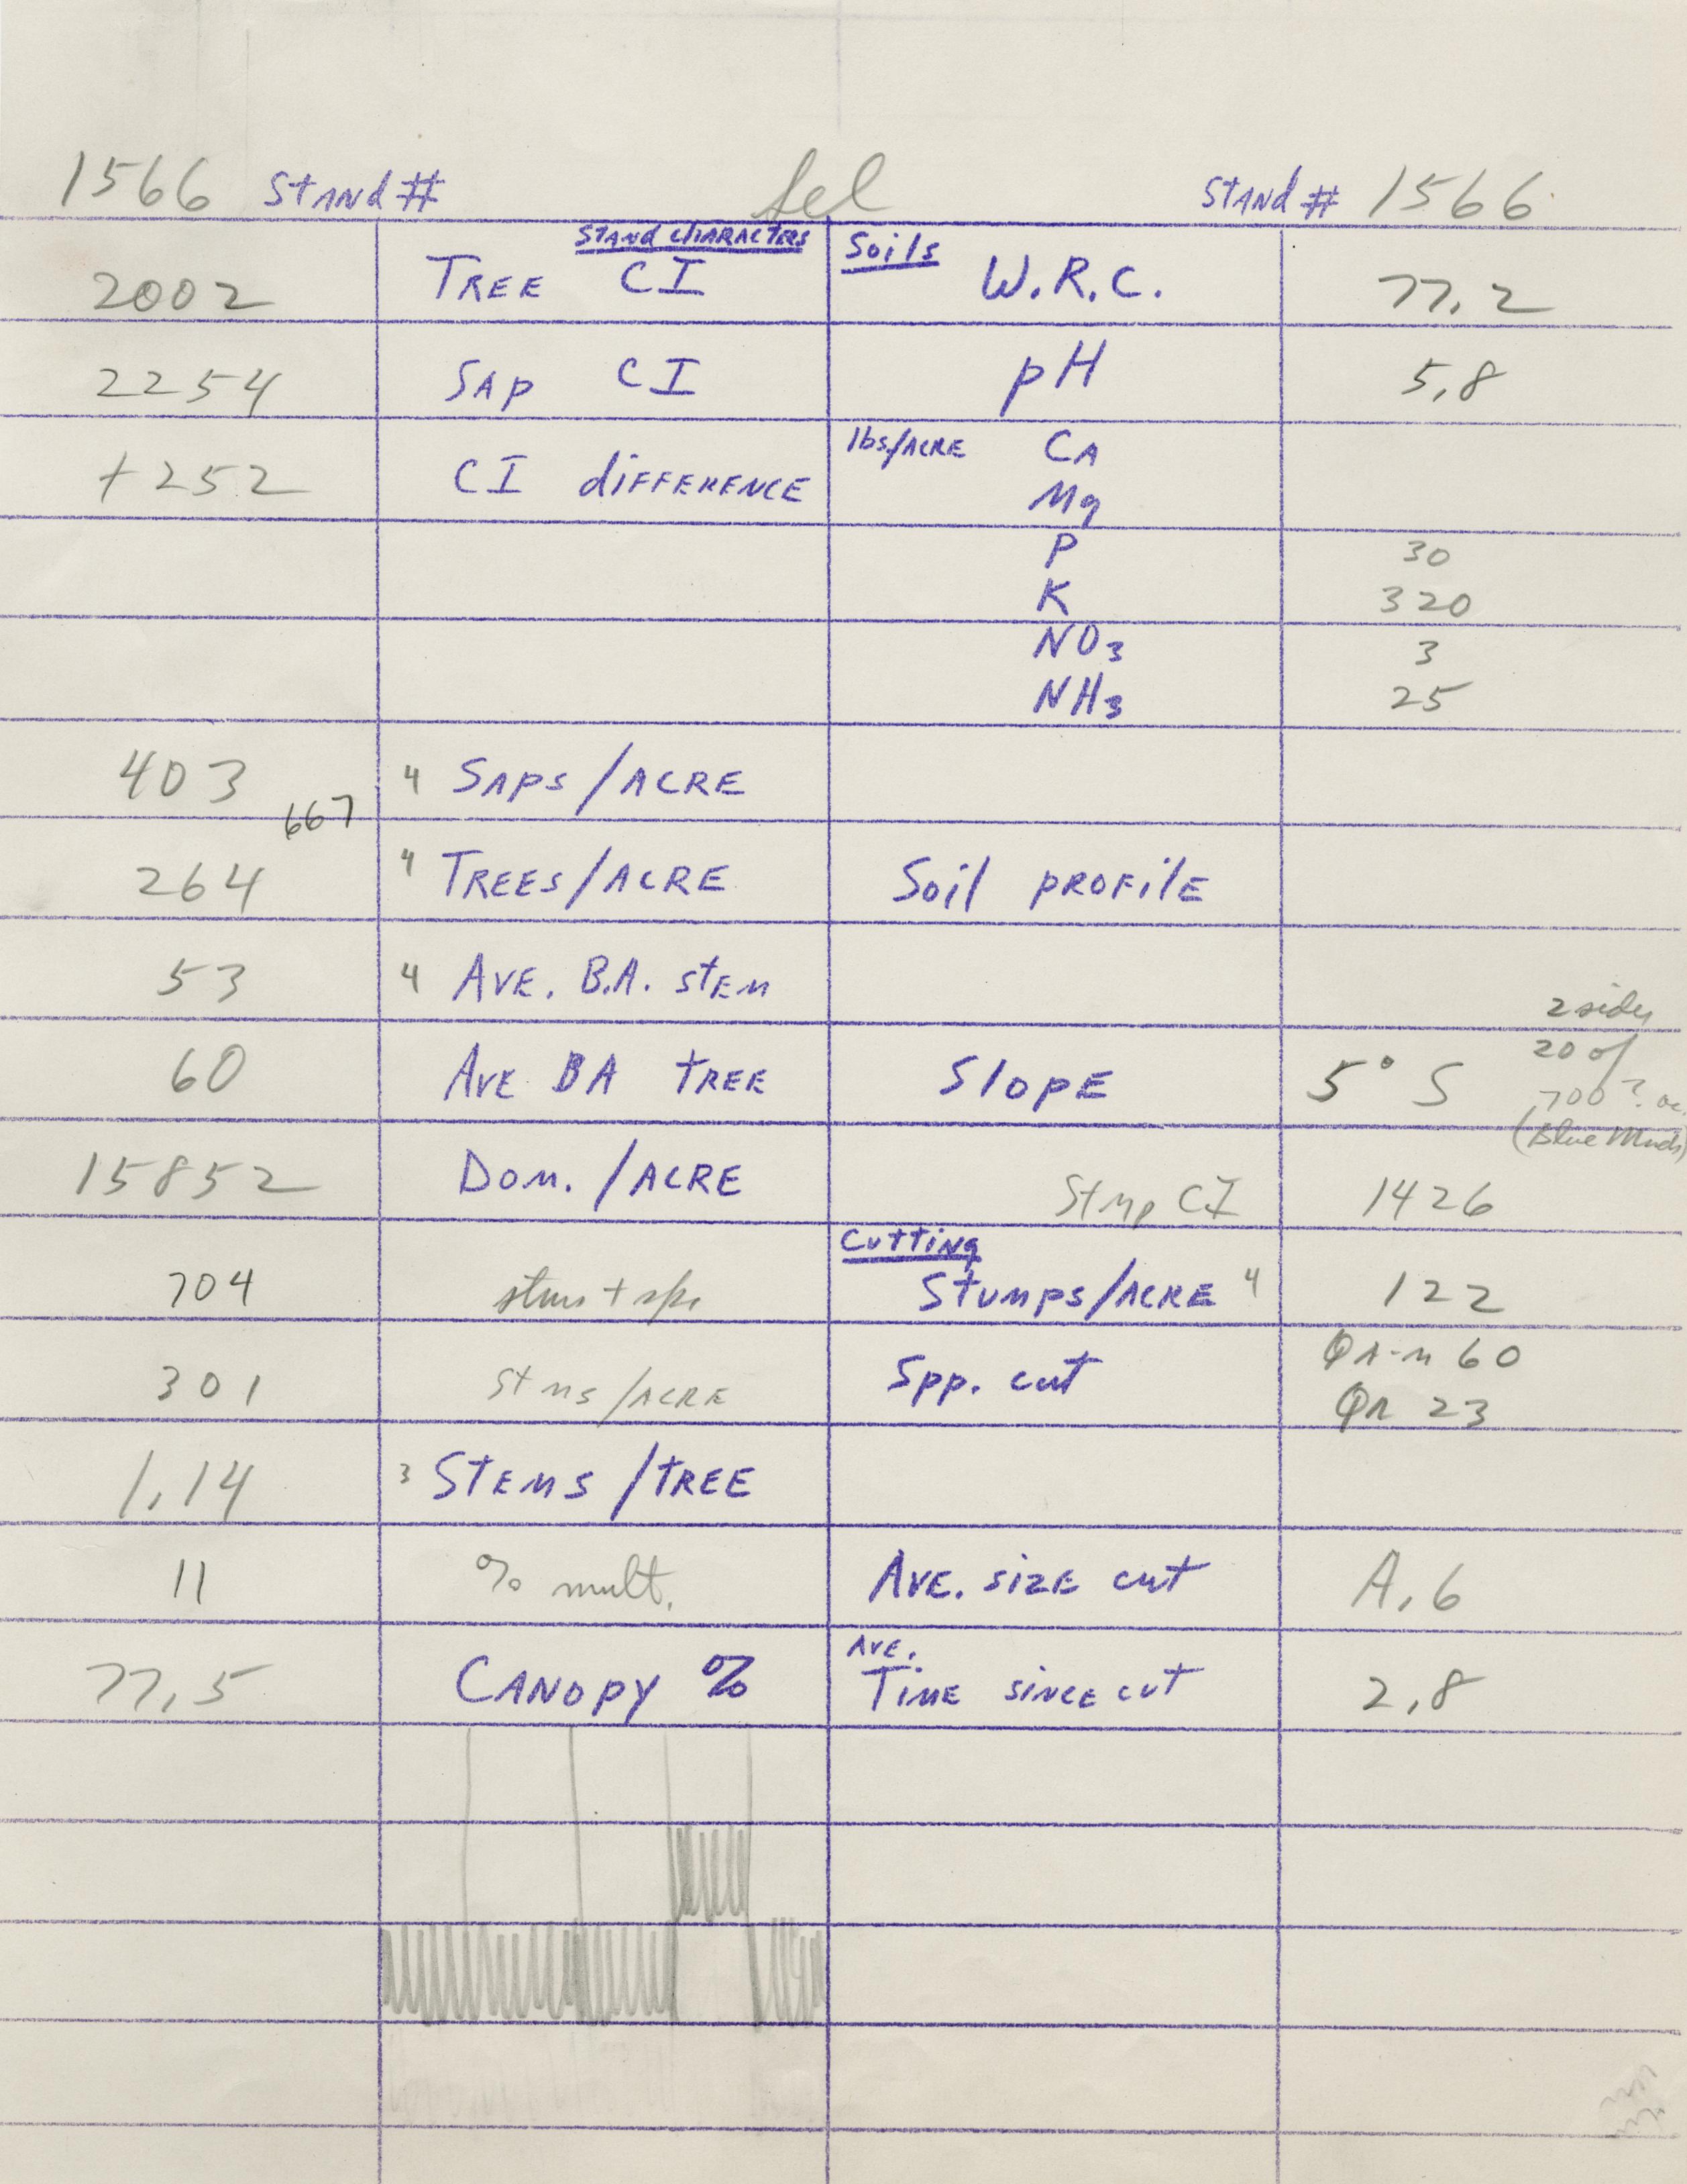 1566 Stand # Sel Stand # 1566
Stand Characters Soils
2002 Tree CI W.R.C. 77.2
2254 Sap CI pH 5.8
+252 CI difference lbs/Acre Ca
Mg
P 30
K 320
NO3 3
NH3 25
403 4 Saps/Acre
667
264 4 Trees/Acre Soil profile
53 4 Ave. B.A. stem
2 sides
60 Ave BA tree Slope 5° S 20 of
700? ac.
(Blue Mnds)
15852 Dom./Acre Stmp CI 1426
Cutting
704 stms + sps Stumps/Acre 4 122
301 Stms/Acre Spp. cut QA-M 60
QR 23
1.14 3 Stems/tree
11 % mult. Ave. size cut A.6
77.5 Canopy % Ave. Time since cut 2.8